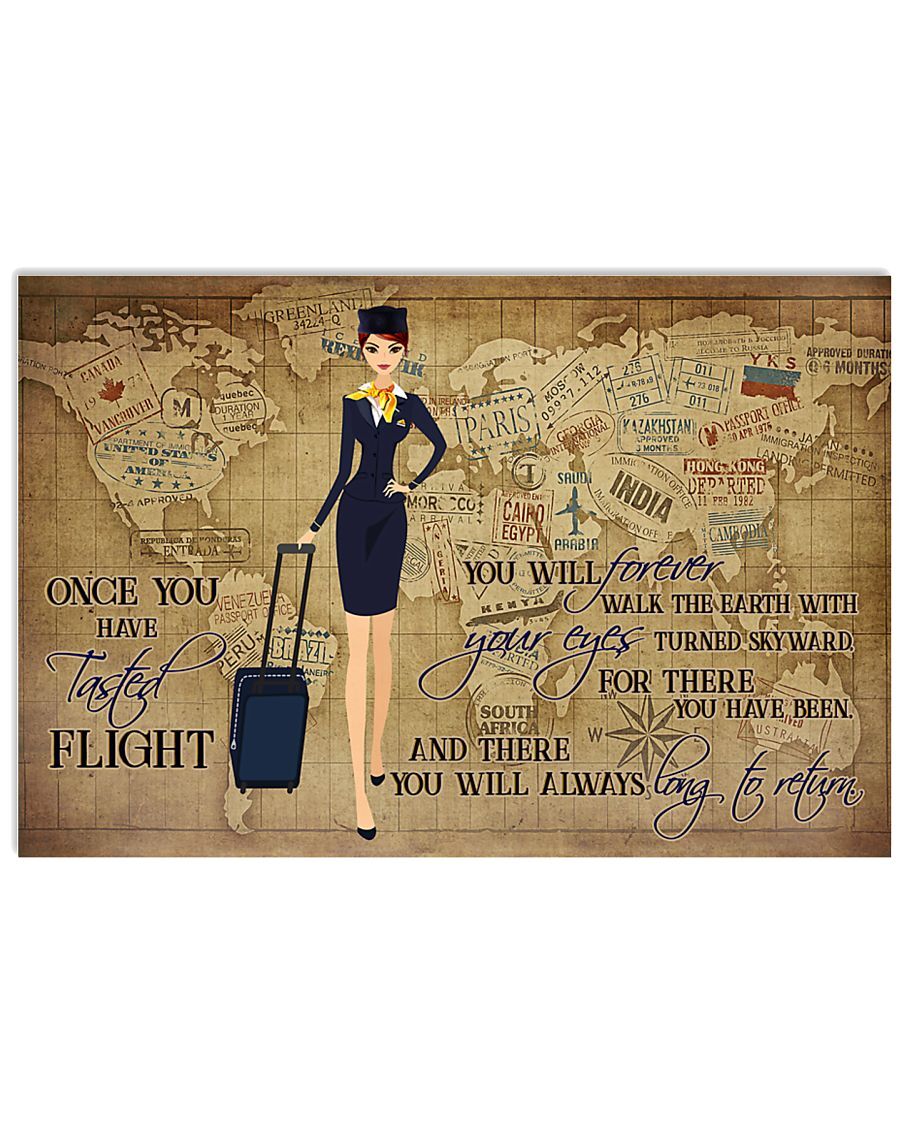 GREENLAND
34224-Q
CANADA
1977
VANCOUVER
M
quebec
DURATION
1 YEAR
quebec
UNITED STATES
OF
AMERICA
APPROVED
REPUBLICA DE HONDURAS
ENTRADA
VENEZUELA
PASSPORT OFFICE
PERU
BRAZIL
IMMIGRATION PORT
PARIS
MOSCOW
09937.112
GEORGIA
INTERNATIONAL
276
276
011
23 018
011
KAZAKHSTAN
APPROVED
3 MONTHS
YKS
APPROVED DURATI
6 MONTHS
PASSPORT OFFICE
IMMIGRATION INSPECTION
LANDING PERMITTED
HONG KONG
DEPARTED
11 FEB 1982
IMMIGRATION OFFICE
INDIA
CAMBODIA
SAUDI
ARABIA
CAIRO
EGYPT
MOROCCO
ARRIVAL
KENYA
SOUTH
AFRICA
W
AUSTRALIA
ONCE YOU
HAVE
Tasted
FLIGHT
YOU WILL forever
WALK THE EARTH WITH
your eyes TURNED SKYWARD,
FOR THERE
YOU HAVE BEEN,
AND THERE
YOU WILL ALWAYS long to return.